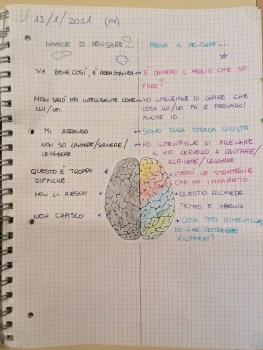 12/1/2021
INVECE DI PENSARE... PROVA A PENSARE...
VA BENE COSÌ, È ABBASTANZA È DAVVERO IL MEGLIO CHE SO
FARE?
NON SARÒ MAI INTELLIGENTE COME HO INTENZIONE DI CAPIRE CHE
LUI/LEI. COSA LUI/LEI FA E PROVARCI
ANCHE IO.
MI ARRENDO SONO SULLA STRADA GIUSTA
NON SO CANTARE/SCRIVERE/ HO INTENZIONE DI ALLENARE
LEGGERE IL MIO CERVELLO A CANTARE/
SCRIVERE/LEGGERE
QUESTO È TROPPO USERÒ LE STRATEGIE
DIFFICILE CHE HO IMPARATO
NON CI RIESCO QUESTO RICHIEDE
TEMPO E IMPEGNO
NON CAPISCO COSA STO DIMENTICANDO
CHE POTREBBE
AIUTARMI?